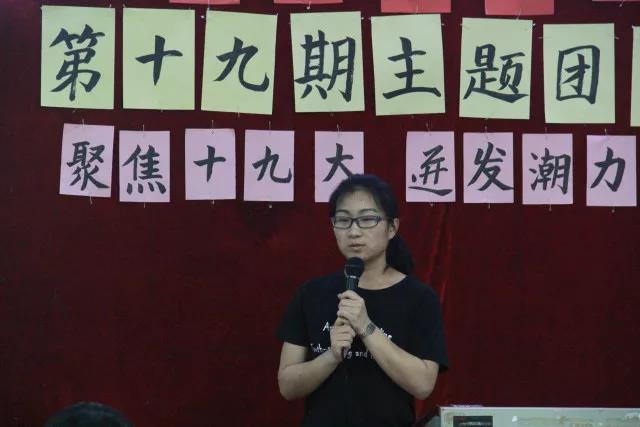 第十九期主题团
聚焦十九大 迸发潮力
and